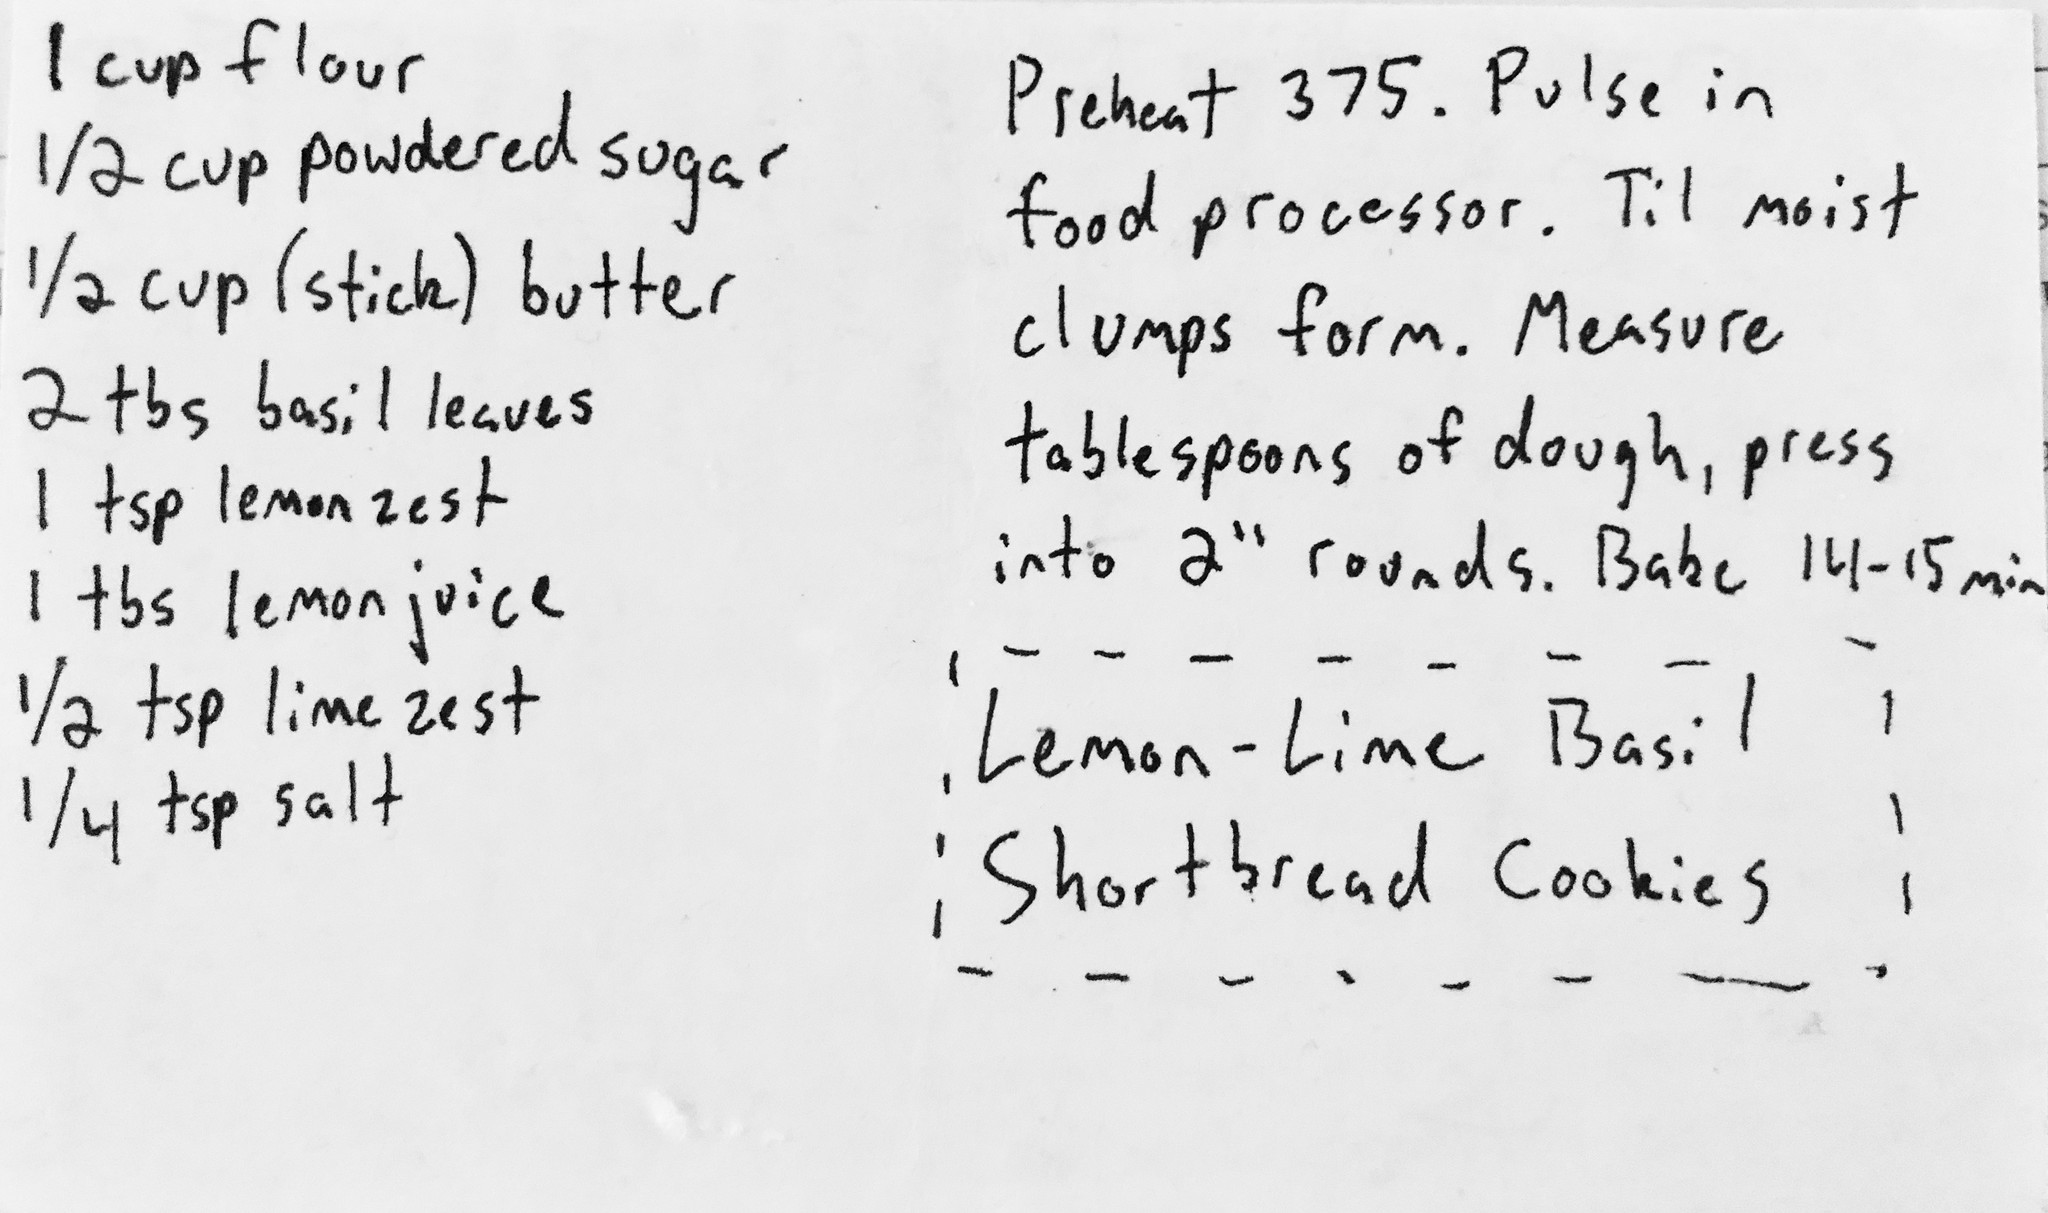 1 cup flour
1/2 cup powdered sugar
1/2 cup (stick) butter
2 tbs basil leaves
1 tsp lemon zest
1 tbs lemon juice
1/2 tsp lime zest
1/4 tsp salt
Preheat 375. Pulse in
food processor. Til moist
clumps form. Measure
tablespoons of dough, press
into 2" rounds. Bake 14-15 min
Lemon-Lime Basil
Shortbread Cookies